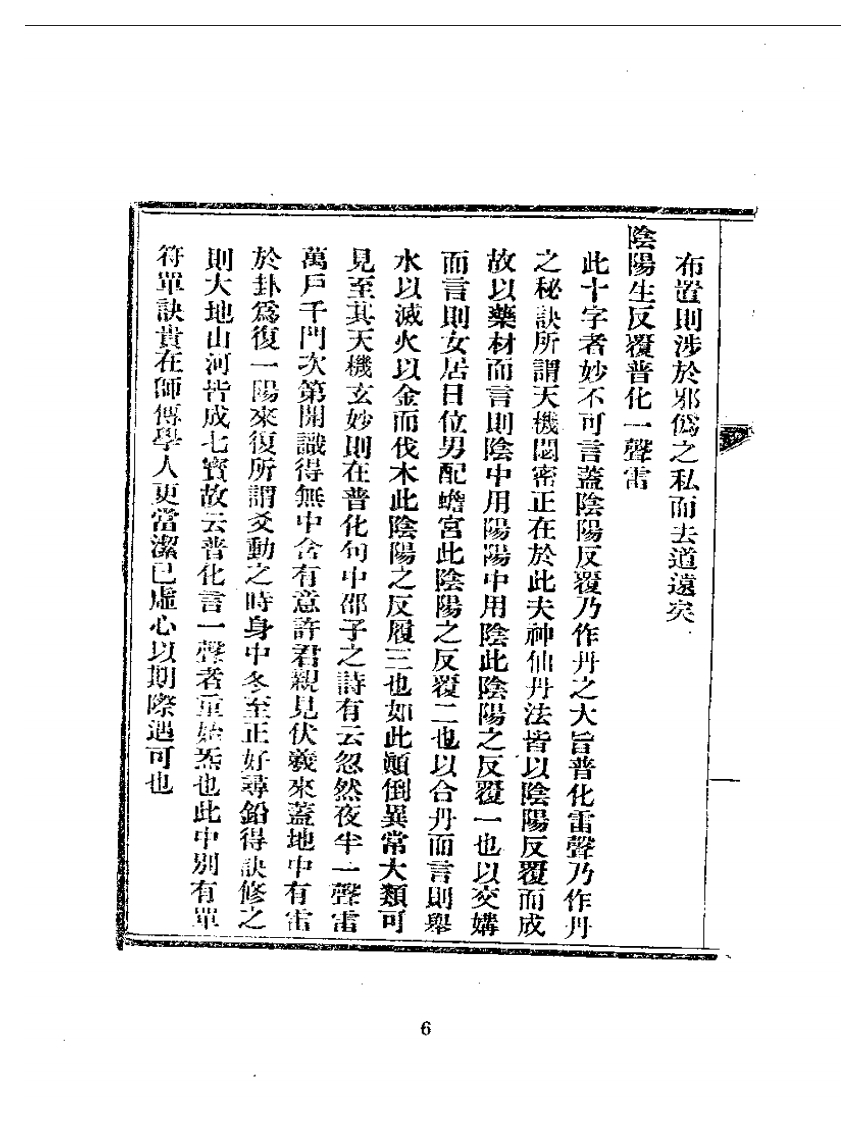 布置則涉於邪僞之私而去道遠矣
陰陽生反覆普化一聲雷
此十字者妙不可言蓋陰陽反覆乃作丹之大旨普化雷聲乃作丹
之秘訣所謂天機閟密正在於此夫神仙丹法皆以陰陽反覆而成
故以藥材而言則陰中用陽陽中用陰此陰陽之反覆一也以交媾
而言則女居日位男配蟾宮此陰陽之反覆二也以合丹而言則舉
水以滅火以金而伐木此陰陽之反履三也如此顚倒異常大類可
見至其天機玄妙則在普化句中邵子之詩有云忽然夜半一聲雷
萬戶千門次第開識得無中含有意許君親見伏羲來蓋地中有雷
於卦爲復一陽來復所謂爻動之時身中冬至正好尋鉛得訣修之
則大地山河皆成七寳故云普化言一聲者重始炁也此中別有單
符單訣貴在師傳學人更當潔已虛心以期際遇可也
6